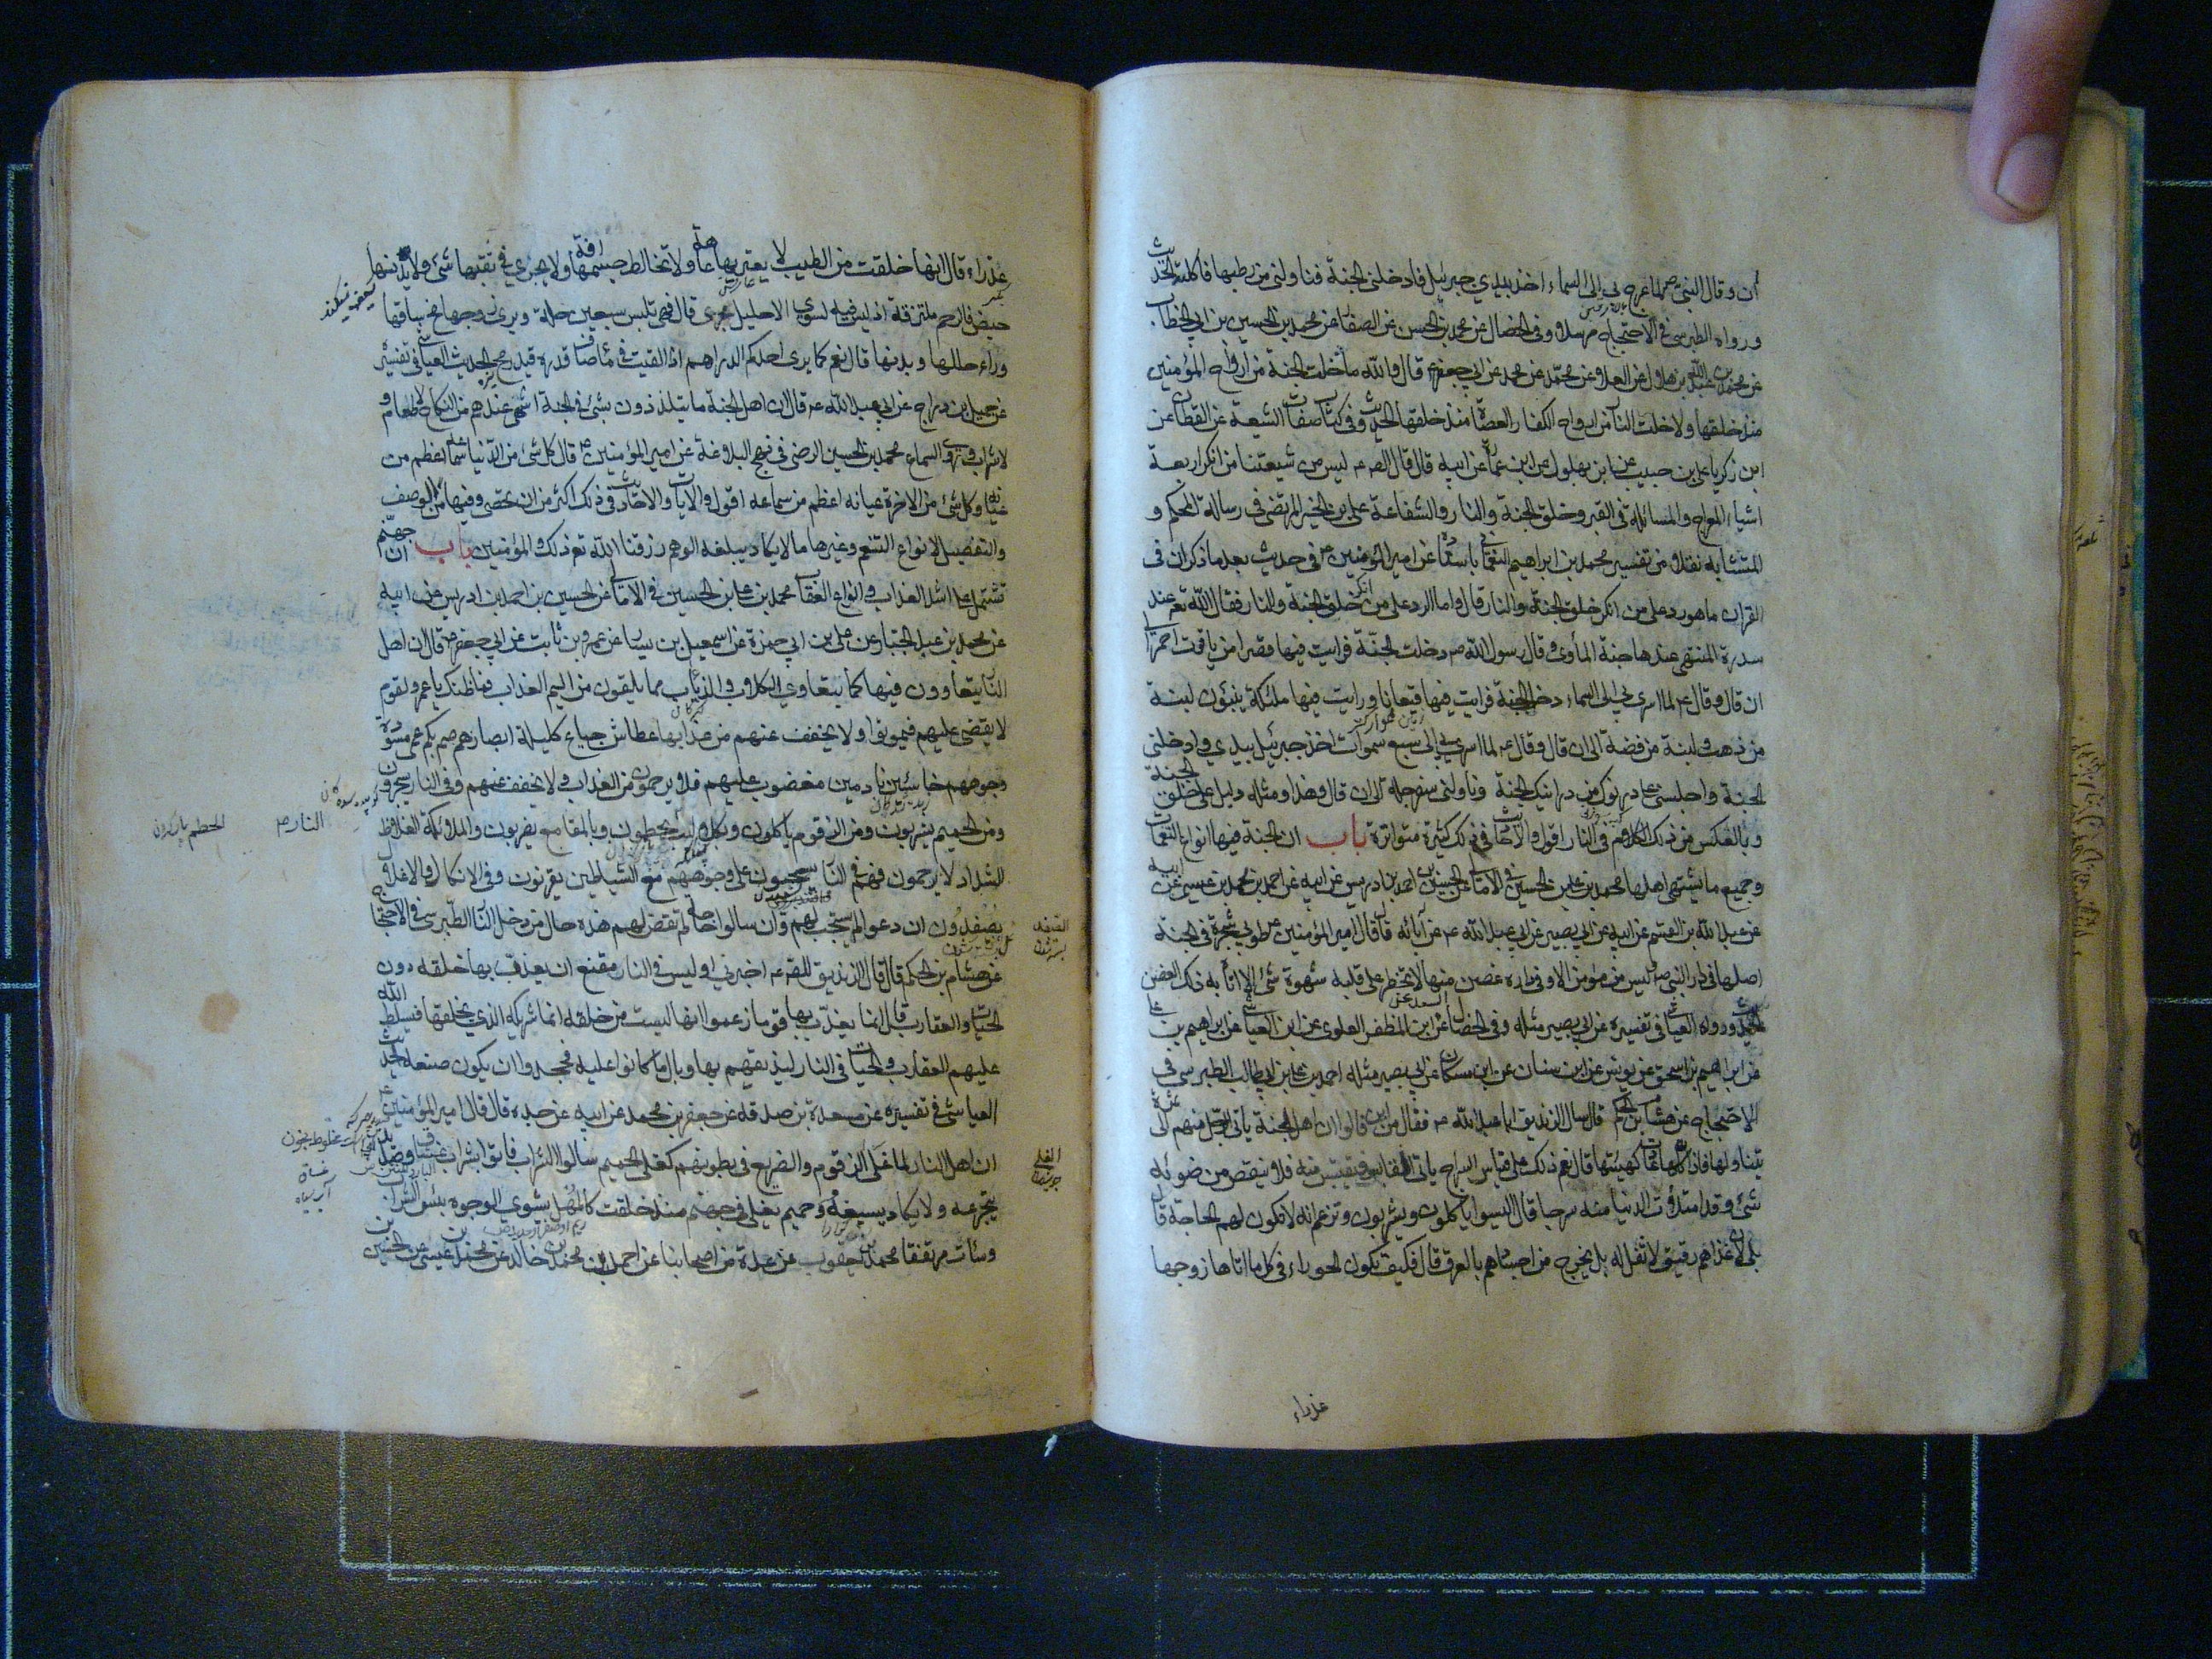 ان وقال النبي ص لما عرج بي إلى السماء اخذ بيدي جبرئيل فادخلني الجنة فناولني من رطبها فاكلته الحديث
ورواه الطبرسي في الاحتجاج مرسلا وفي الخصال عن محمد بن الحسن عن الصفار عن محمد بن الحسين بن ابي الخطاب
عن محمد بن عبد الله بن هلال عن العلا عن محمد عن ابي جعفر ع قال والله ما خلت الجنة من ارواح المؤمنين
منذ خلقها ولا خلت النار من ارواح الكفار العصاة منذ خلقها الحديث وفي كتاب صفات الشيعة عن القطان عن
ابن زكريا عن ابن حبيب عن ابن بهلول عن ابن عمارة عن ابيه قال قال الصه ع ليس من شيعتنا من انكر اربعة
اشياء المعراج والمسائلة في القبر وخلق الجنة والنار والشفاعة علي بن الحسين المرتضى في رسالة المحكم و
المتشابه نقلا من تفسير محمد بن ابراهيم النعماني باسناده عن امير المؤمنين ع في حديث بعد ما ذكر ان في
القران ما هو رد على من انكر خلق الجنة والنار قال واما الرد على من انكر خلق الجنة والنار فقال الله تعم عند
سدرة المنتهى عندها جنة المأوى وقال رسول الله ص دخلت الجنة فرايت فيها قصرا من ياقوت احمر الى
ان قال وقال ع لما اسري بي إلى السماء دخلت الجنة فرايت فيها قيعانا ورايت فيها ملئكة يبنون لبنة
من ذهب ولبنة من فضة الى ان قال وقال ع لما اسري بي إلى سبع سموات اخذ جبرئيل بيدي وادخلني
الجنة واجلسني على درنوك من درانيك الجنة وناولني سفرجلة الى ان قال وهذا ومثله دليل على خلق الجنة
وبالعكس من ذلك الكلام في النار اقول والاحاديث في ذلك كثيرة متواترة باب ان الجنة فيها انواع النعمات
وجميع ما تشتهي اهلها محمد بن علي بن الحسين في الامالي عن الحسين بن احمد بن ادريس عن ابيه عن احمد بن محمد بن عيسى عن ابيه
عن عبد الله بن القسم عن ابيه عن ابي بصير عن ابي عبد الله ع عن آبائه قال قال امير المؤمنين ع طوبى شجرة في الجنة
اصلها في دار النبي ص وليس من مؤمن الا وفي داره غصن منها لا تخطر على قلبه شهوة شئ الا اتاه به ذلك الغصن
الحديث ورواه العياشي في تفسيره عن ابي بصير مثله وفي الخصال عن ابن المظفر العلوي عن ابن العياشي عن ابراهيم بن علي
عن ابراهيم بن اسحق عن يونس عن ابن سنان عن ابن مسكان عن ابي بصير مثله احمد بن علي بن ابي طالب الطبرسي في
الاحتجاج عن هشام بن الحكم قال سال الزنديق ابا عبد الله ع فقال من اين قالوا ان اهل الجنة ياتي الرجل منهم الى ثمرة
يتناولها فاذا اكلها عادت كهيئتها قال نعم ذلك على قياس السراج ياتي القابس فيقتبس منه فلا ينقص من ضوئه
شئ وقد امتلات الدنيا منه سرجا قال اليسوا ياكلون ويشربون وتزعم انه لا تكون لهم الحاجة قال
بلى لان غذاهم رقيق لا ثفل له بل يخرج من اجسادهم بالعرق قال فكيف تكون الحوراء في كل ما اتاها زوجها
عذراء
عذراء قال انها خلقت من الطيب لا يعتريها عاهة ولا تخالط جسمها افة ولا يجري في ثقبها شئ ولا يدنسها
حيض فالرحم ملتزقة اذ ليس فيه لسوى الاحليل مجرى قال فهي تلبس سبعين حلة ويرى زوجها مخ ساقها
وراء حللها وبدنها قال نعم كما يرى احدكم الدراهم اذا القيت في ماء صاف قدره قيد رمح الحديث العياشي في تفسيره
عن جميل بن دراج عن ابي عبد الله ع قال ان اهل الجنة ما يتلذذون بشئ في الجنة اشهى عندهم من النكاح لا طعام و
لا شراب محمد بن الحسين الرضي في نهج البلاغة عن امير المؤمنين ع قال كل شئ من الدنيا سماعه اعظم من
عيانه وكل شئ من الاخرة عيانه اعظم من سماعه اقول والايات والاحاديث في ذلك اكثر من ان تحصى وفيها من الوصف
والتفصيل لانواع التنعم وغيرها ما لا يكاد يبلغه الوهم رزقنا الله تعم ذلك والمؤمنين باب ان جهنم
تشتمل على اشد العذاب وانواع العقاب محمد بن علي بن الحسين في الامالي عن الحسين بن احمد بن ادريس عن ابيه
عن محمد بن عبد الجبار عن علي بن ابي حمزة عن اسمعيل بن يسار عن عمرو بن ثابت عن ابي جعفر ع قال ان اهل
النار يتعاوون فيها كما يتعاوى الكلاب والذئاب مما يلقون من اليم العذاب فما ظنك يا عمرو بقوم
لا يقضى عليهم فيموتوا ولا يخفف عنهم من عذابها عطاش جياع كليلة ابصارهم صم بكم عمي مسودة
وجوههم خاسئين نادمين مغضوب عليهم فلا يرحمون من العذاب ولا يخفف عنهم وفي النار يسجرون
ومن الحميم يشربون ومن الزقوم ياكلون وبكلاليب النار يحطمون وبالمقامع يضربون والملائكة الغلاظ
الشداد لا يرحمون فهم في النار يسحبون على وجوههم مع الشياطين يقرنون وفي الانكال والاغلال
يصفدون ان دعوا لم يستجب لهم وان سالوا حاجة لم تقض لهم هذه حال من دخل النار الطبرسي في الاحتجاج
عن هشام بن الحكم قال قال الزنديق للصه ع اخبرني اوليس في النار مقنع ان يعذب بها خلقه دون
الحيات والعقارب قال انما يعذب بها قوما زعموا انها ليست من خلق الله انما شريكه الذي يخلقها فيسلط
عليهم العقارب والحيات في النار ليذيقهم بها وبال ما كانوا عليه فجحدوا ان يكون صنعه الحديث
العياشي في تفسيره عن مسعدة بن صدقة عن جعفر بن محمد عن ابيه عن جده قال قال امير المؤمنين ع
ان اهل النار لما غلى الزقوم والضريع في بطونهم كغلي الحميم سالوا الشراب فاتوا بشراب غساق وصديد
يتجرعه ولا يكاد يسيغه وحميم يغلي في جهنم منذ خلقت كالمهل يشوي الوجوه بئس الشراب
وساءت مرتفقا محمد بن يعقوب عن عدة من اصحابنا عن احمد بن محمد بن خالد عن محمد بن عيسى عن الحسين بن